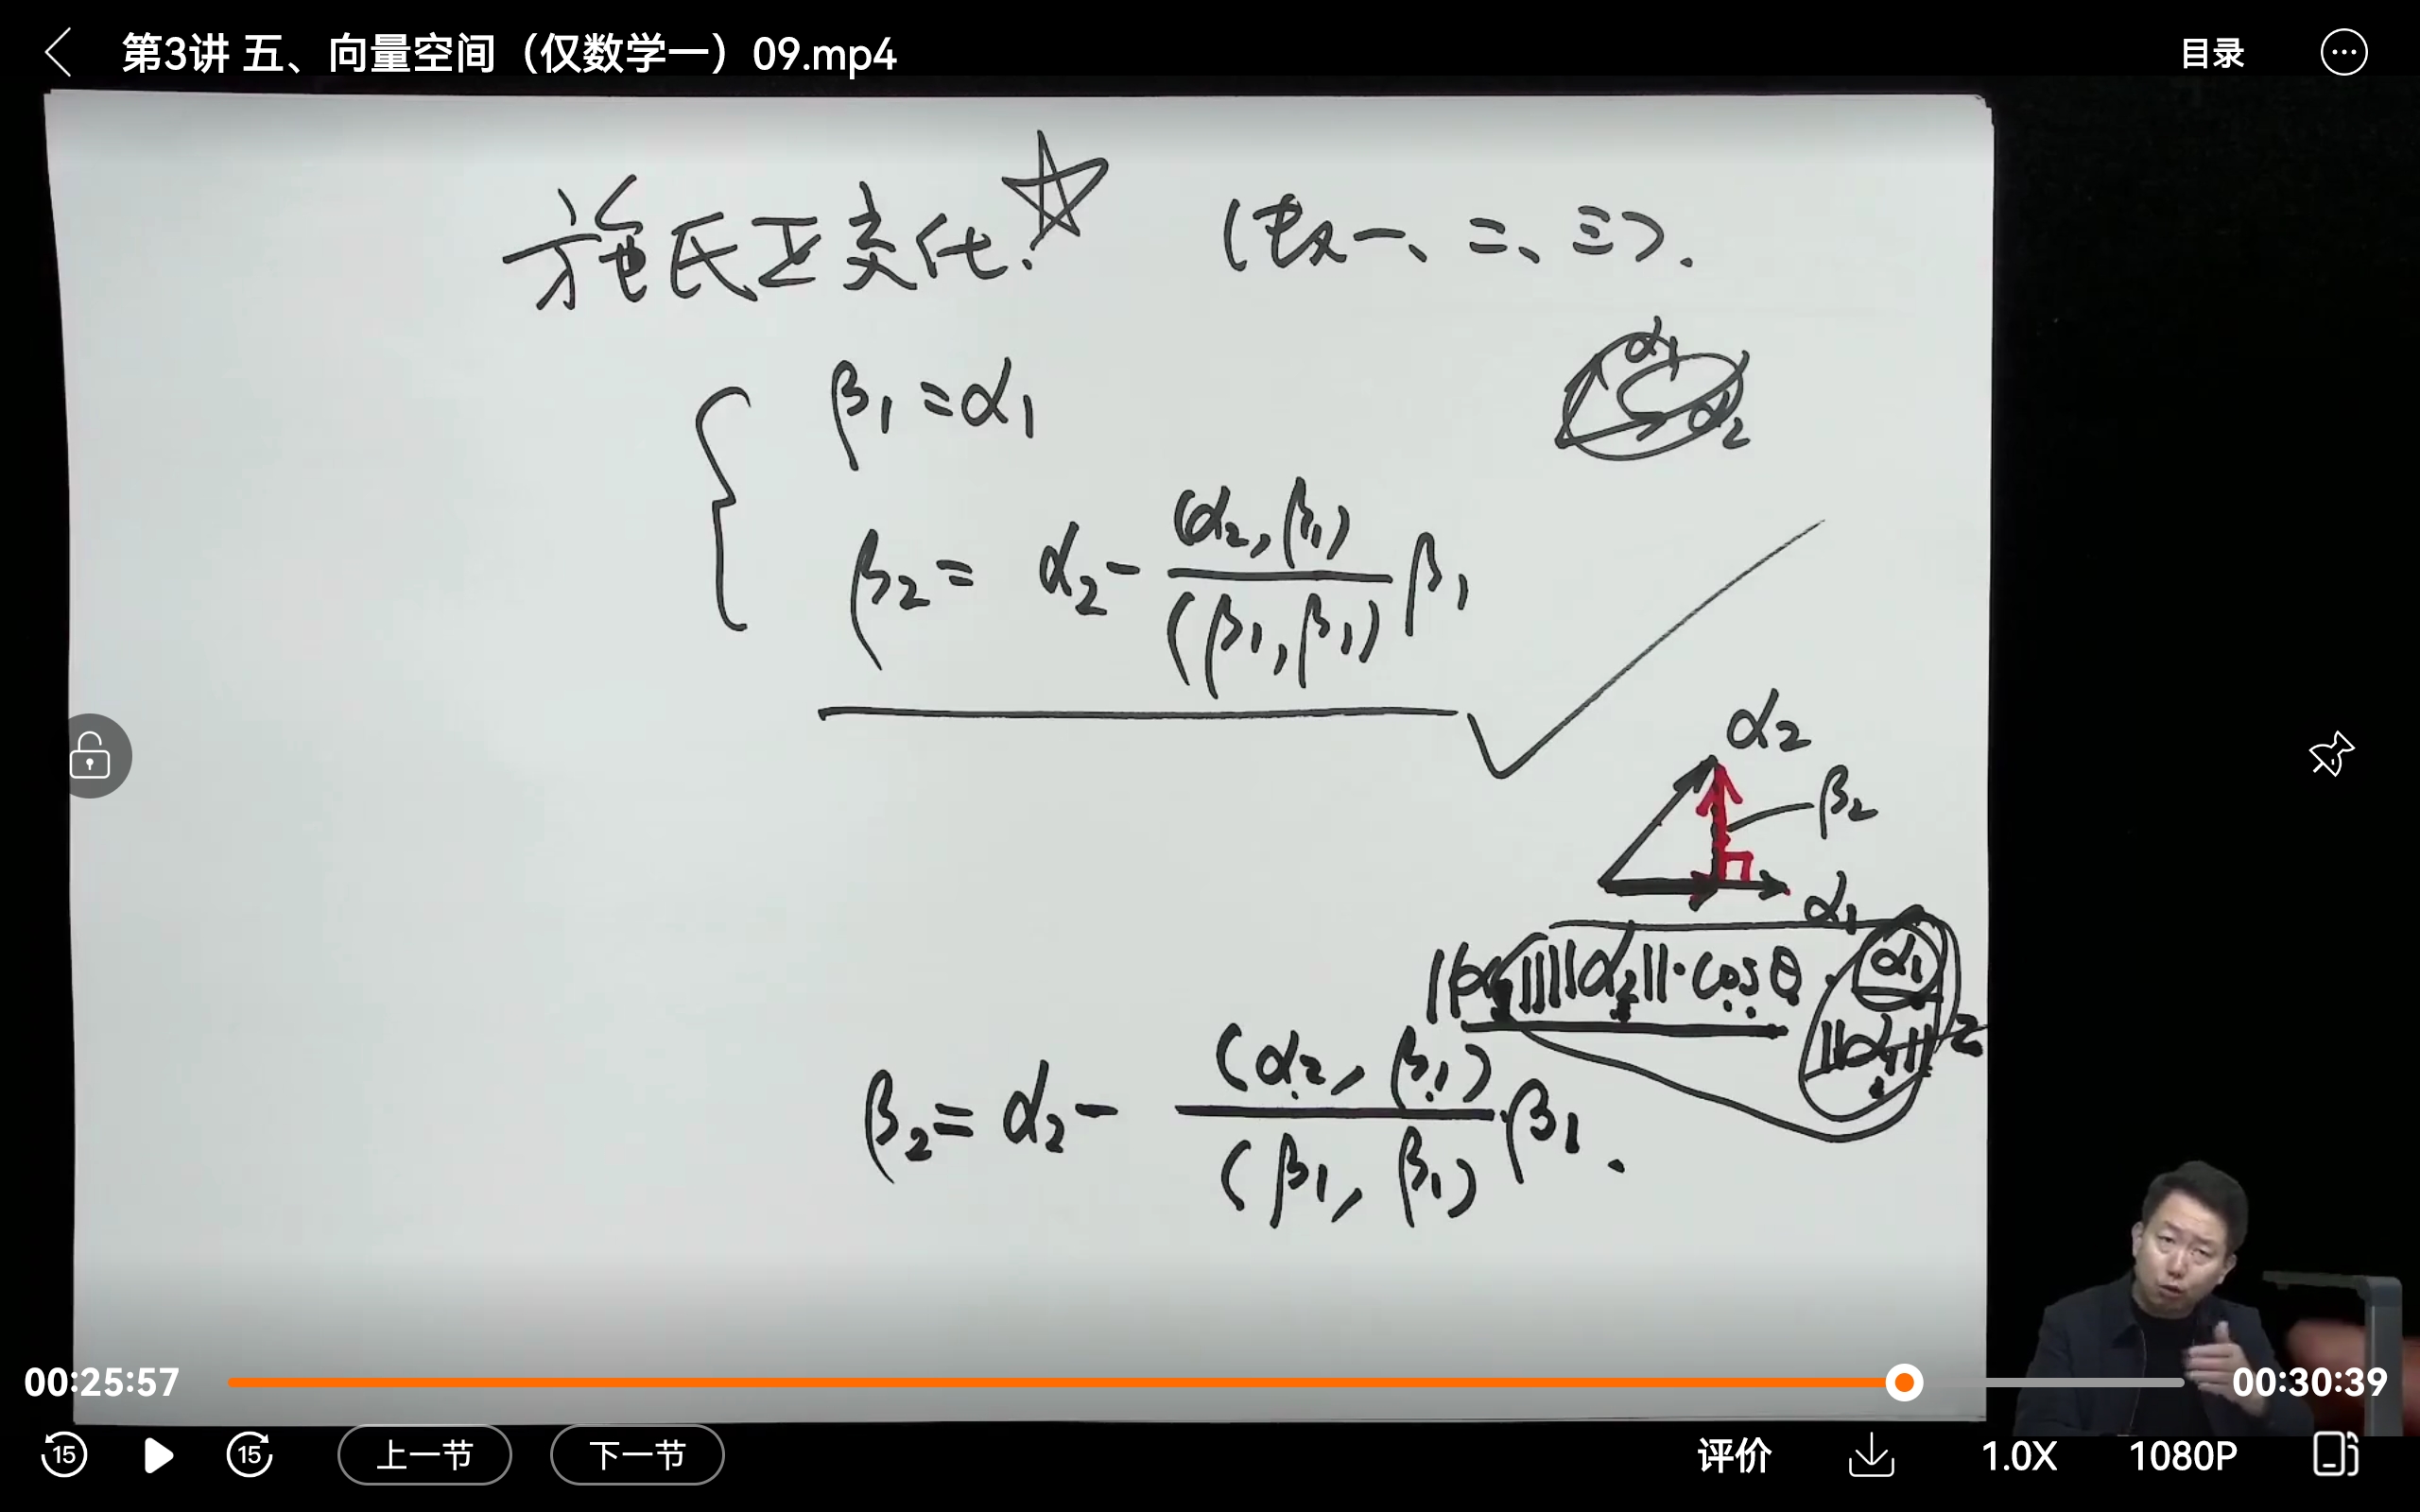 第3讲 五、向量空间（仅数学一）09.mp4
目录
施氏正交化. (数一、二、三).
β1=α1
α1
α2
β2= α2- (α2,β1)/(β1,β1) β1
α2
β2
α1
||α1||||α2||·cosθ · α1/||α1||2
β2=α2- (α2, β1)/(β1, β1) ·β1.
00:25:57
00:30:39
15
15
上一节
下一节
评价
1.0X
1080P